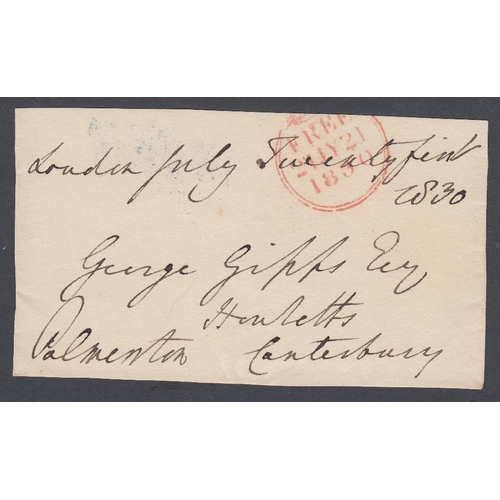 London July Twentyfirst
1830
George Gipps Esq
Howletts
Palmerston Canterbury
FREE
JY 21
1830